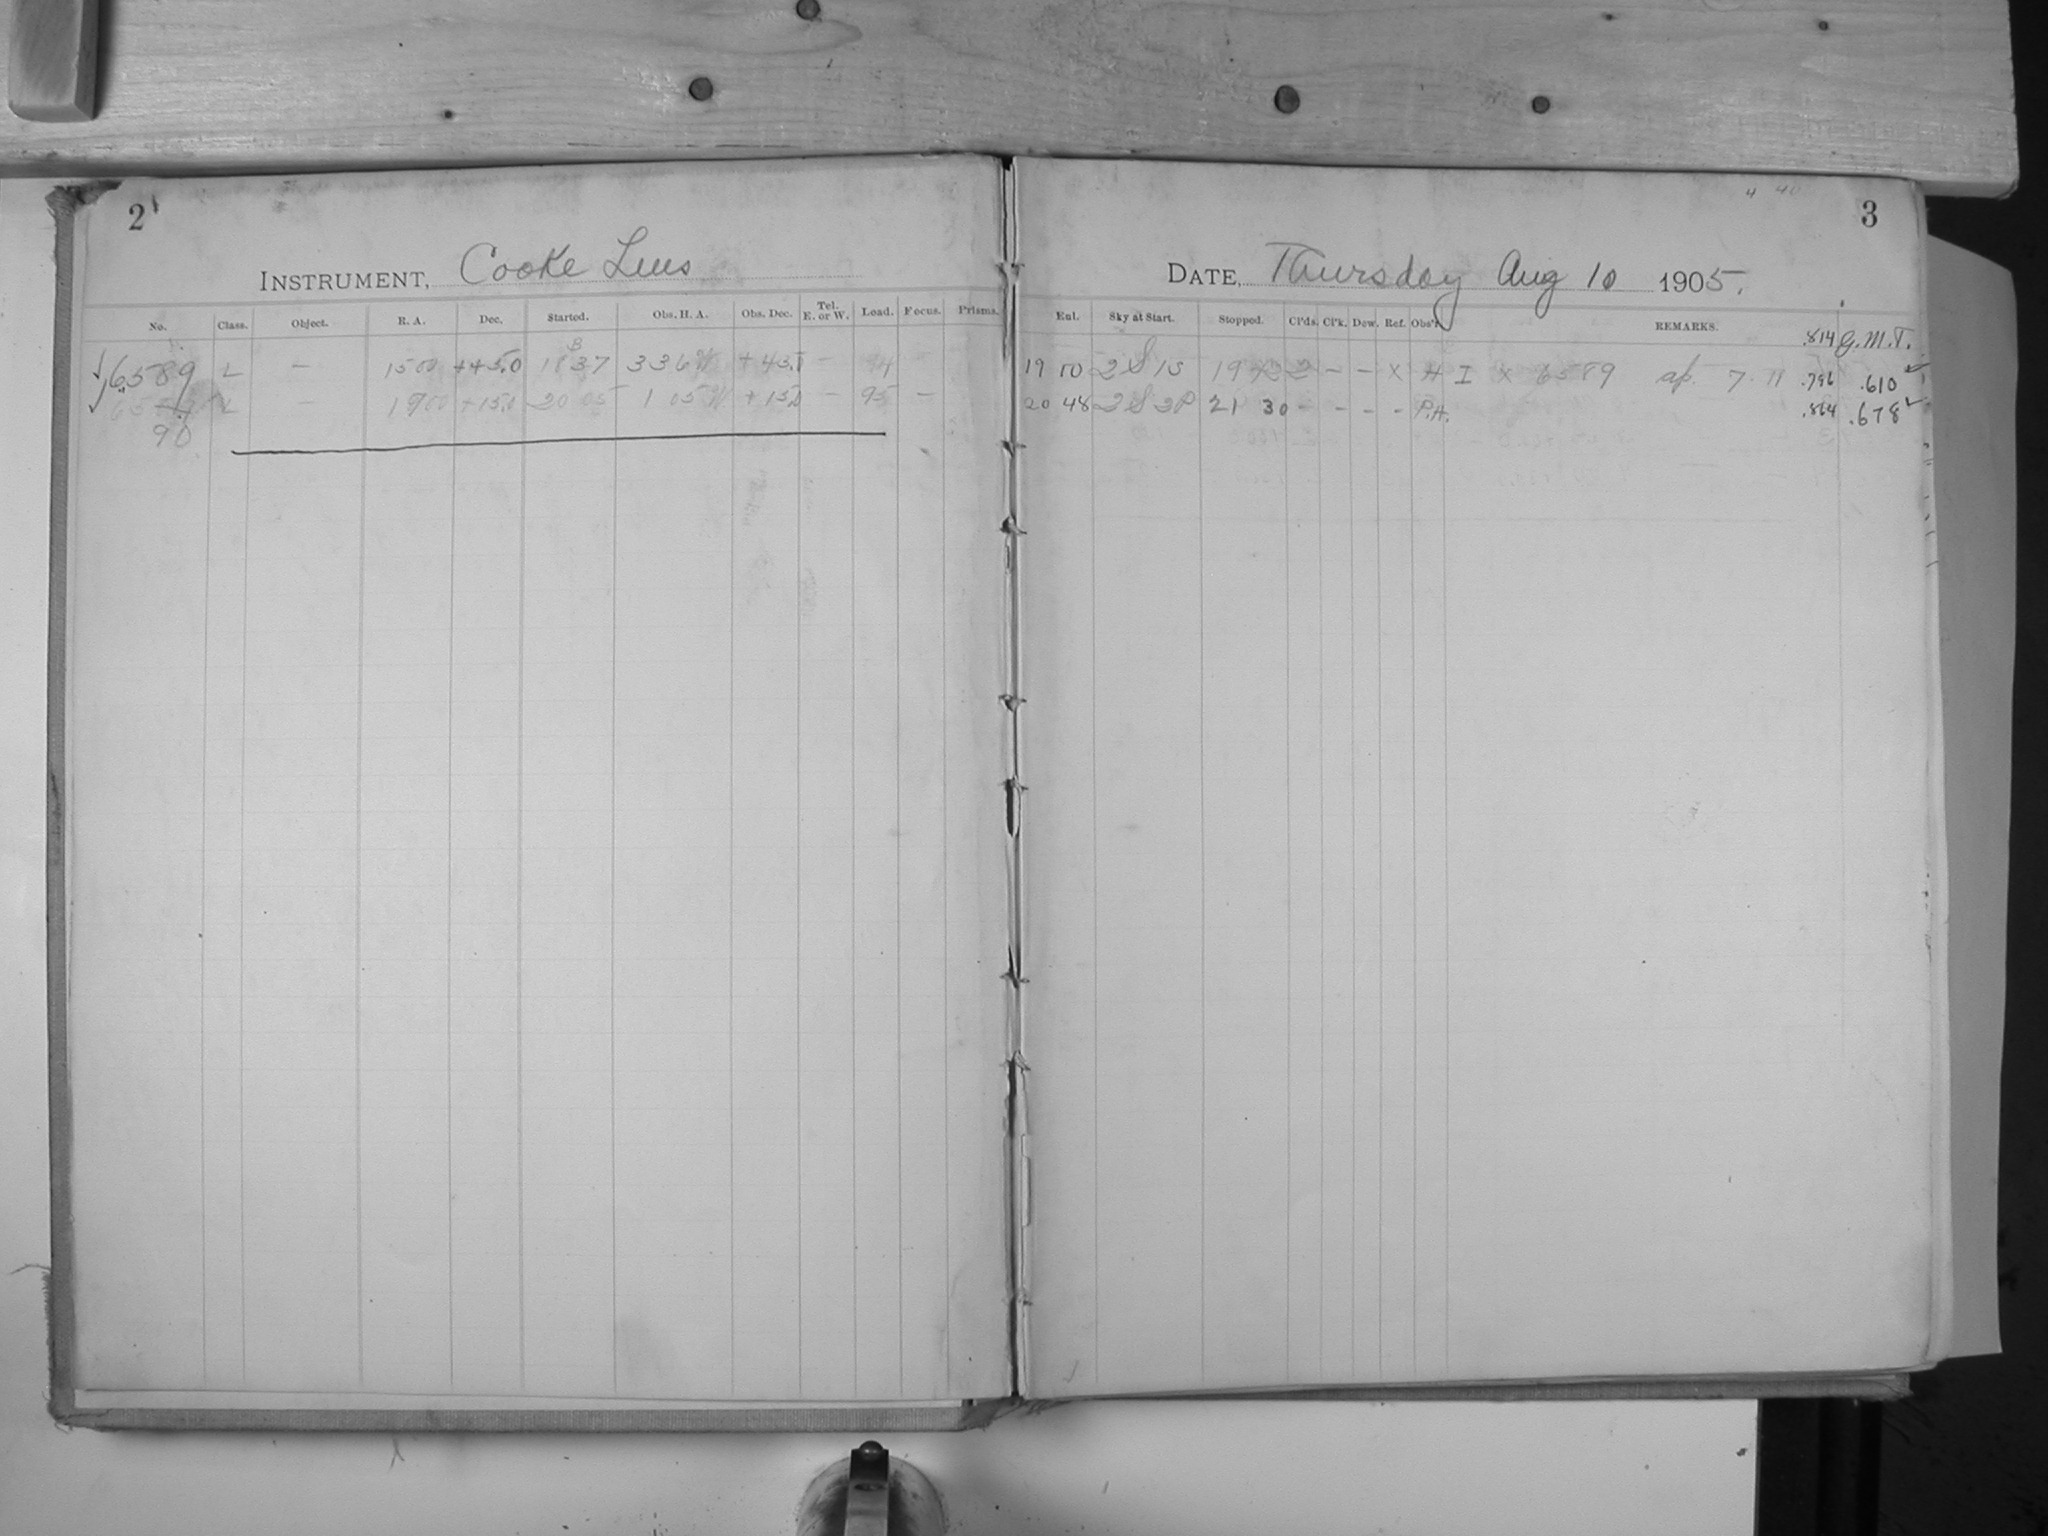 2
INSTRUMENT, Cooke Lens
No. Class. Object. R. A. Dec. Started. Obs. H. A. Obs. Dec. Tel. E. or W. Load. Focus. Prisms.
B
16589 L — 1500 +45.0 18 37 3 36 W +45.1 — 94 —
L — 1900 +15.0 20 05 1 05 W +15.0 — 95 —
90
3
DATE, Thursday Aug 10 1905.
Enl. Sky at Start. Stopped. Cl'ds. Cl'k. Dew. Ref. Obs'r. REMARKS. .814 G.M.T.
19 10 2 S 1S 19 2 — — X H I X 6589 ap. 7. 11 .796 .610
20 48 2 S 2P 21 30 - - - - P.H. .864 .678